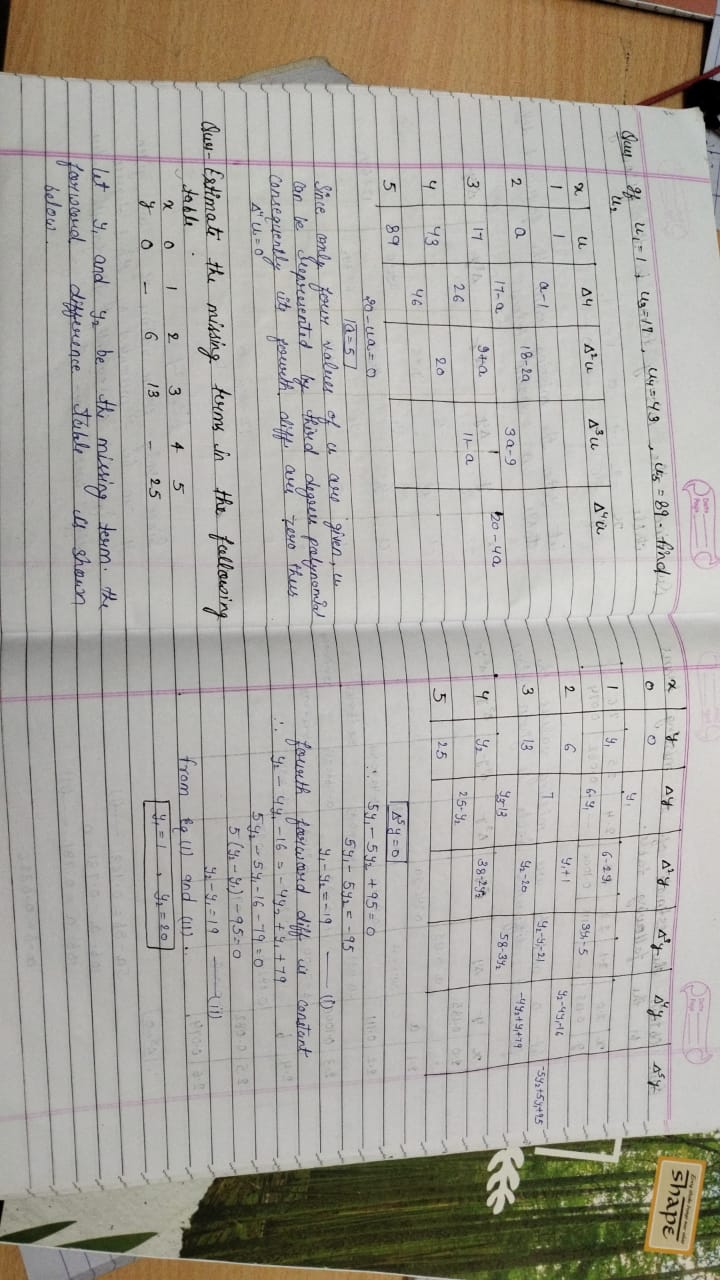 Date
Page
Ques If u₁=1, u₃=17, u₄=43, u₅=89. find
u₂
x u Δ4 Δ²u Δ³u Δ⁴u
1 1
a-1
2 a 18-2a
3a-9
17-a 20-4a
3 17 9+a
11-a
26
4 43 20
46
5 89
20-4a=0
a=5
Since only four values of u are given, u
can be represented by third degree polynomial
consequently its fourth diff. are zero thus
Δ⁴u=0
Ques- Estimate the missing terms in the following
table.
x 0 1 2 3 4 5
y 0 — 6 13 — 25
let y₁ and y₂ be the missing term. the
forward difference table is shown
below.
Date
Page
x y Δy Δ²y Δ³y Δ⁴y Δ⁵y
0 0
y₁
1 y₁ 6-2y₁
6-y₁ 3y₁-5
2 6 y₁+1 y₂-4y₁-16
7 y₂-y₁-21 -5y₂+5y₁+95
3 13 y₂-20 -4y₂+y₁+79
y₃-13 58-3y₂
4 y₂ 38-2y₂
25-y₂
5 25
Δ⁵y=0
∴ 5y₁-5y₂+95=0
5y₁-5y₂=-95
y₁-y₂=-19 —— (i)
fourth forward diff is constant
∴ y₂-4y₁-16=-4y₂+y₁+79
5y₂-5y₁-16-79=0
5(y₂-y₁)-95=0
y₂-y₁=19 —— (ii)
from Eq (i) and (ii).
y₁=1, y₂=20
Every shake brings our vibe
shape